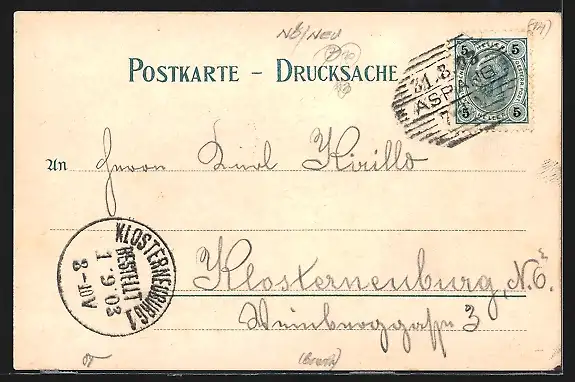 NÖ/NEU
POSTKARTE – DRUCKSACHE
5 5
31.8.03
ASPANG
7
5 5
An Herrn Karl Kirillo
KLOSTERNEUBURG 1
BESTELLT
1 9 03
8-10V
Klosterneuburg, N.Ö.
Weinberggasse 3